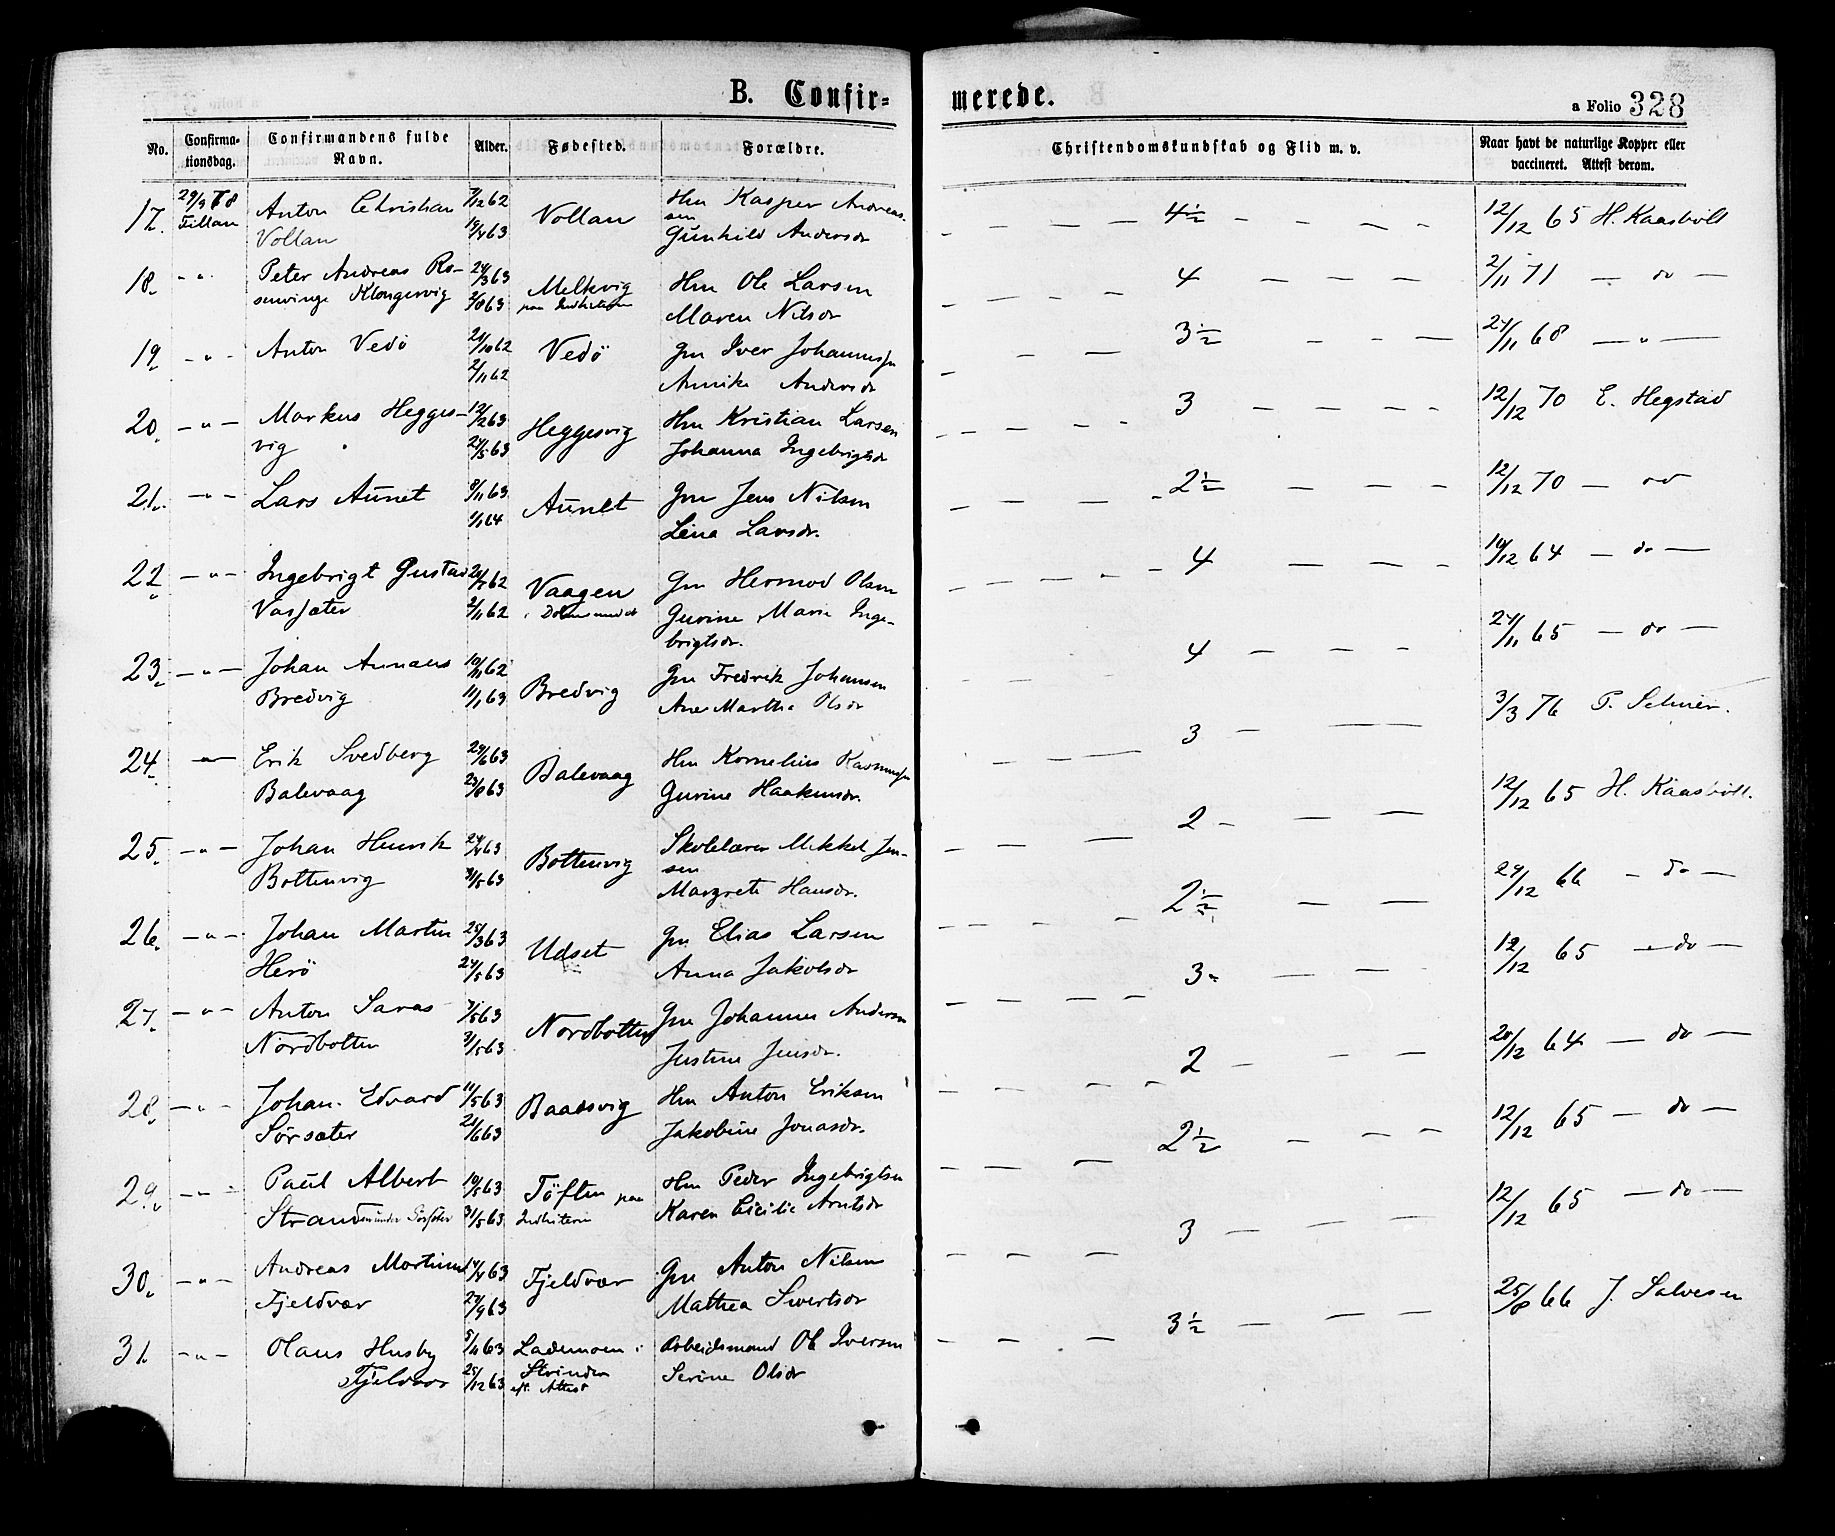 B. Confir=
merede.
a Folio 328
No.
Confirma-
tionsdag.
Confirmandens fulde
Navn.
Alder.
Fødested.
Forældre.
Christendomskundskab og Flid m. v.
Naar havt de naturlige Kopper eller
vaccineret. Attest derom.
17. 29/9 78 Anton Christian 7/12 62 Vollan Hm Kasper Andreas- 4½ 12/12 65 H. Kaasbøll
Fillan Vollan 19/4 63 sen
Gunhild Andersdr
18. -"- Peter Andreas Ro- 24/3 63 Melkvig Hm Ole Larsen 4 2/11 71 - do -
senvinge Klongervig 2/8 63 paa Indhitteren Maren Nilsdr
19. -"- Anton Vedö 21/10 62 Vedö Gm Iver Johannessen 3½ 24/11 68 - " -
2/11 62 Annike Andersdr
20. -"- Markus Hegges- 12/2 63 Heggesvig Hm Kristian Larsen 3 12/12 70 E. Hegstad
vig 24/5 63 Johanna Ingebrigtsdr
21. -"- Lars Aunet 8/11 63 Aunet Gm Jens Nilsen 2½ 12/12 70 - do
1/1 64 Lena Larsdr.
22. -"- Ingebrigt Gustad 62 Vaagen Gm Hermod Olsen 4 19/12 64 - do -
Vassæter 2/11 62 i Dolmsundet Gurine Marie Inge-
brigtsdr.
23. -"- Johan Annæus 10/11 62 Bredvig Gm Fredrik Johansen 4 24/11 65 - do -
Bredvig 11/1 63 Ane Martha Olsdr
24. -"- Erik Svedberg 29/6 63 Balevaag Hm Kornelius Rasmussen 3 3/3 76 P.
Balevaag 23/8 63 Gurine Haakensdr.
25. -"- Johan Henrik 24/4 63 Bottenvig Skolelærer Mikkel Jen- 2 12/12 65 H. Kaasbøll.
Bottenvig 31/5 63 sen
Margrete Hansdr.
26. -"- Johan Martin 25/3 63 Udset Gm Elias Larsen 2½ 29/12 66 - do -
Herö 24/5 63 Anna Jakobsdr
27. -"- Anton Savas 7/5 63 Nordbotten Gm Johannes Andersen 3 12/12 65 - do -
Nordbotten 31/5 63 Justine Jensdr.
28. -"- Johan Edvard 11/5 63 Baadsvig Hm Anton Eriksen 2 20/12 64 - do -
Sörsæter 21/6 63 Jakobine Jonasdr.
29. -"- Paul Albert 10/5 63 Töften paa Hm Peder Ingebrigtsen 2½ 12/12 65 - do -
Stranden under 31/5 63 Indhitteren Karen Cicilie Arntsdr
30. -"- Andreas Martinus 14/4 63 Fjeldvær Gm Anton Nilsen 3 12/12 65 - do -
Fjeldvær 27/9 63 Mathea Sivertsdr
31. -"- Olaus Husby 5/11 63 Lademoen i Arbeidsmand Ole Iversen 3½ 25/8 66 J. Salvesen
Fjeldvær 25/12 63 Strinden Serine Olsdr
eft. Attest